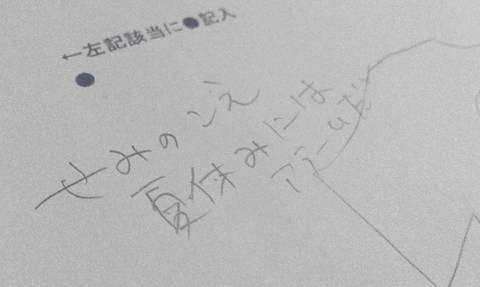 ←左記該当に●記入
せみのこえ
夏休みには
アラームだ